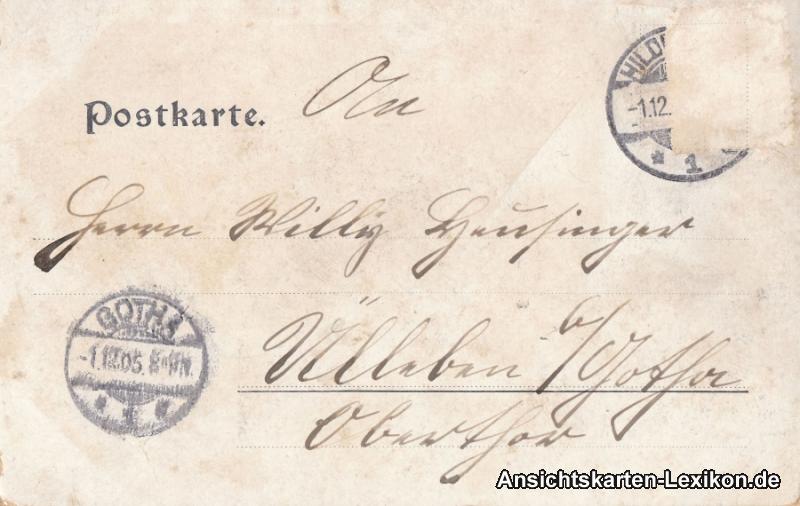 Postkarte.
An
HILD
-1.12.
* 1
Herrn Willy Heusinger
GOTHA
-1.12.05. 8-9N.
* 1 *
Ülleben b/Gotha
Oberthor
Ansichtskarten-Lexikon.de